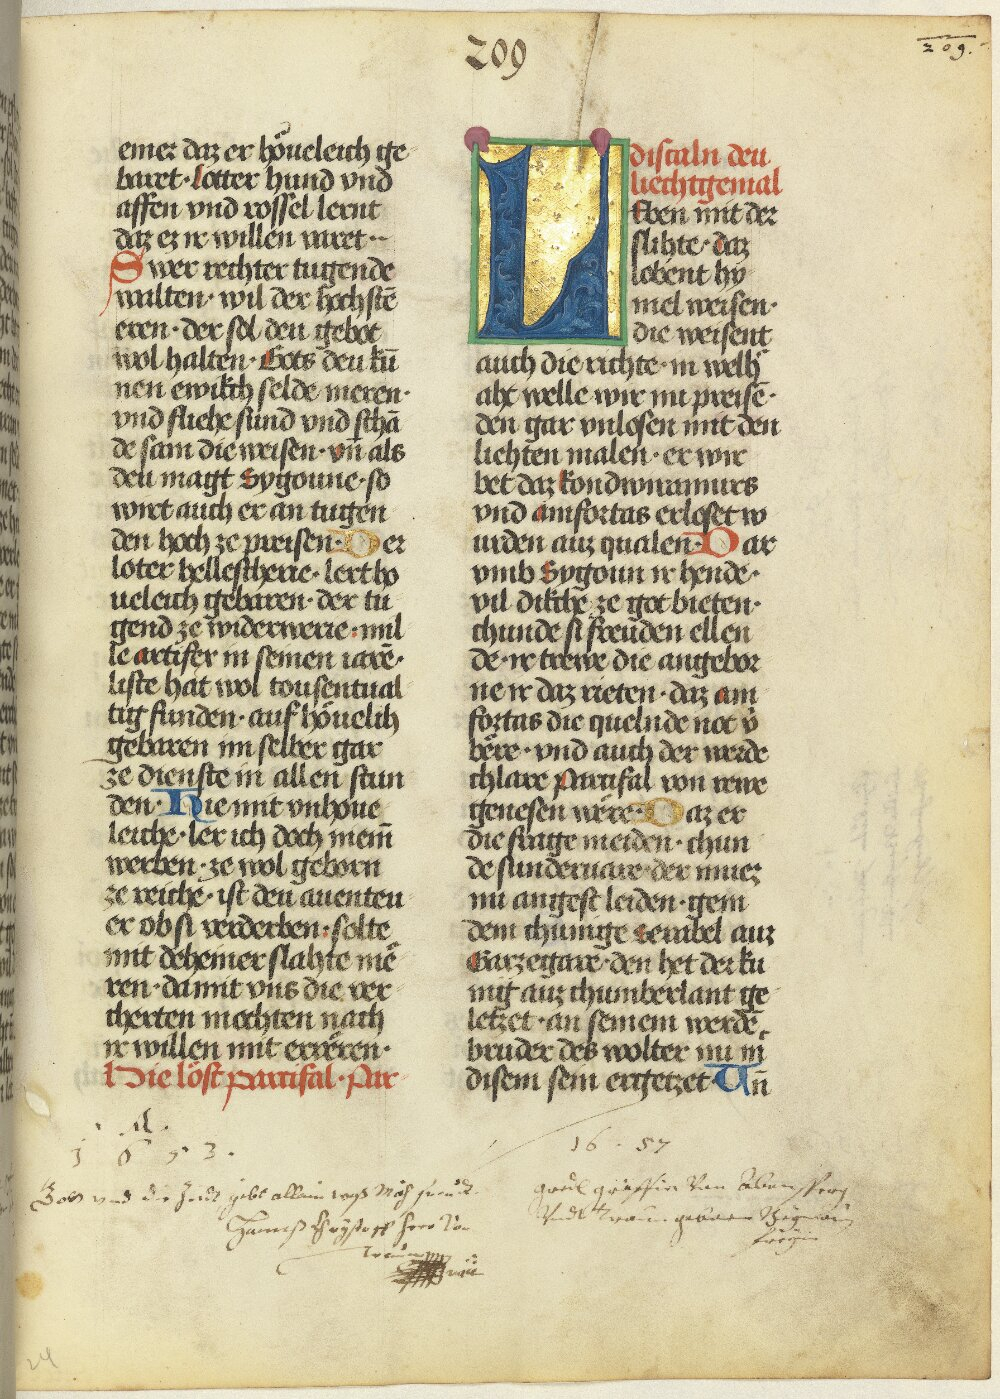 209
209.
einer daz er hôueleich ge
baret· lotter hund vnd
affen vnd rossel lernt
daz ez ir willen varet··
Swer rechter tugende
walten· wil der hochstē
eren· der sol deu gebot
wol halten· Gots deu kū
nen ewikch selde meren·
vnd fliehe sund vnd schā
de sam die weisen· vn̄ als
deu magt Sygoune· so
wirt auch er an tugen
den hoch ze preisen· Der
loter hellescherre· lert ho
ueleich gebaren· der tu
gend ze widerwerre· mil
le artifex in seinen iarē·
liste hat wol tousentual
tig funden· auf hôuelich
gebaren im selber gar
ze dienste in allen stun
den· Hie mit vnhoue
leiche· ler ich doch niem̄
werben· ze wol geborn
ze reiche· ist deu auenteu
er ob si verderben· solte
mit deheiner slahte mē
ren· da mit vns die ver
cherten mochten nach
ir willen mit errêren·
Hie löst partifal· Par
discaln deu
liechtgemal
Eben mit der
slihte· daz
lobent hy
mel weisen·
die weisent
auch die richte· in welh̄
aht welle wir nu preisē·
den gar vnlosen mit den
liehten malen· er wir
bet daz kondwiramurs
vnd amfortas erloset w
urden auz qualen· Dar
vmb Sygoun ir hende·
vil dikche ze got bieten·
chunde si freuden ellen
de· ir trewe die angebor
ne ir daz rieten· daz am
fortas die quelnde not v̄
bêre· vnd auch der werde
chlare Partifal von rewe
genesen wêre· Daz er
die frage meiden· chun
de sunderuare· der muez
nu angest leiden· gein
dem chunige Lerribel auz
Garzegare· den het der ku
nig auz chumberlant ge
letzet· an seinem werdē
bruder des wolter nu in̄
disem sein ergetzet· Vn̄
16 53.
16 · 57
24